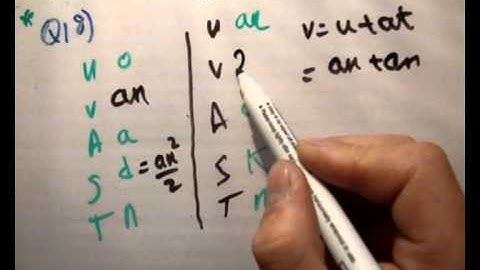 * Q18)
u o
v an
A a
S d = an²/2
T n
u an
v ?
A
S
T n
v = u + at
= an + an